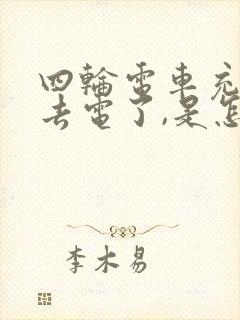 四輪電車充
去電了,是怎
李木易